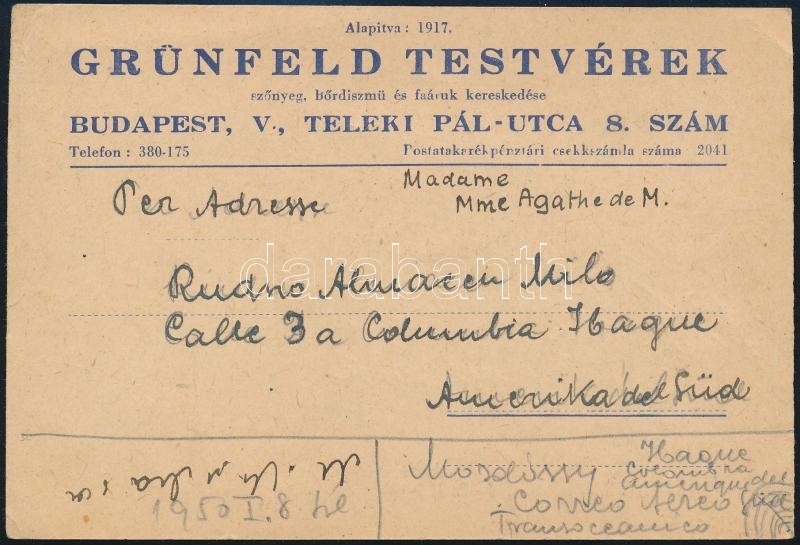 Alapitva: 1917.
GRÜNFELD TESTVÉREK
szőnyeg, bőrdiszmü és faáruk kereskedése
BUDAPEST, V., TELEKI PÁL-UTCA 8. SZÁM
Telefon: 380-175 Postatakarékpénztári csekkszámla száma 2041
Madame
Per Adresse Mme Agathe de M.
darabanth
Rudno Almacen Milo
Calle 3a Columbia Ibague
Amerika del Süd
Ibague
Columbia
Correo Aereo Süd
Transoceanico
1950 I. 8